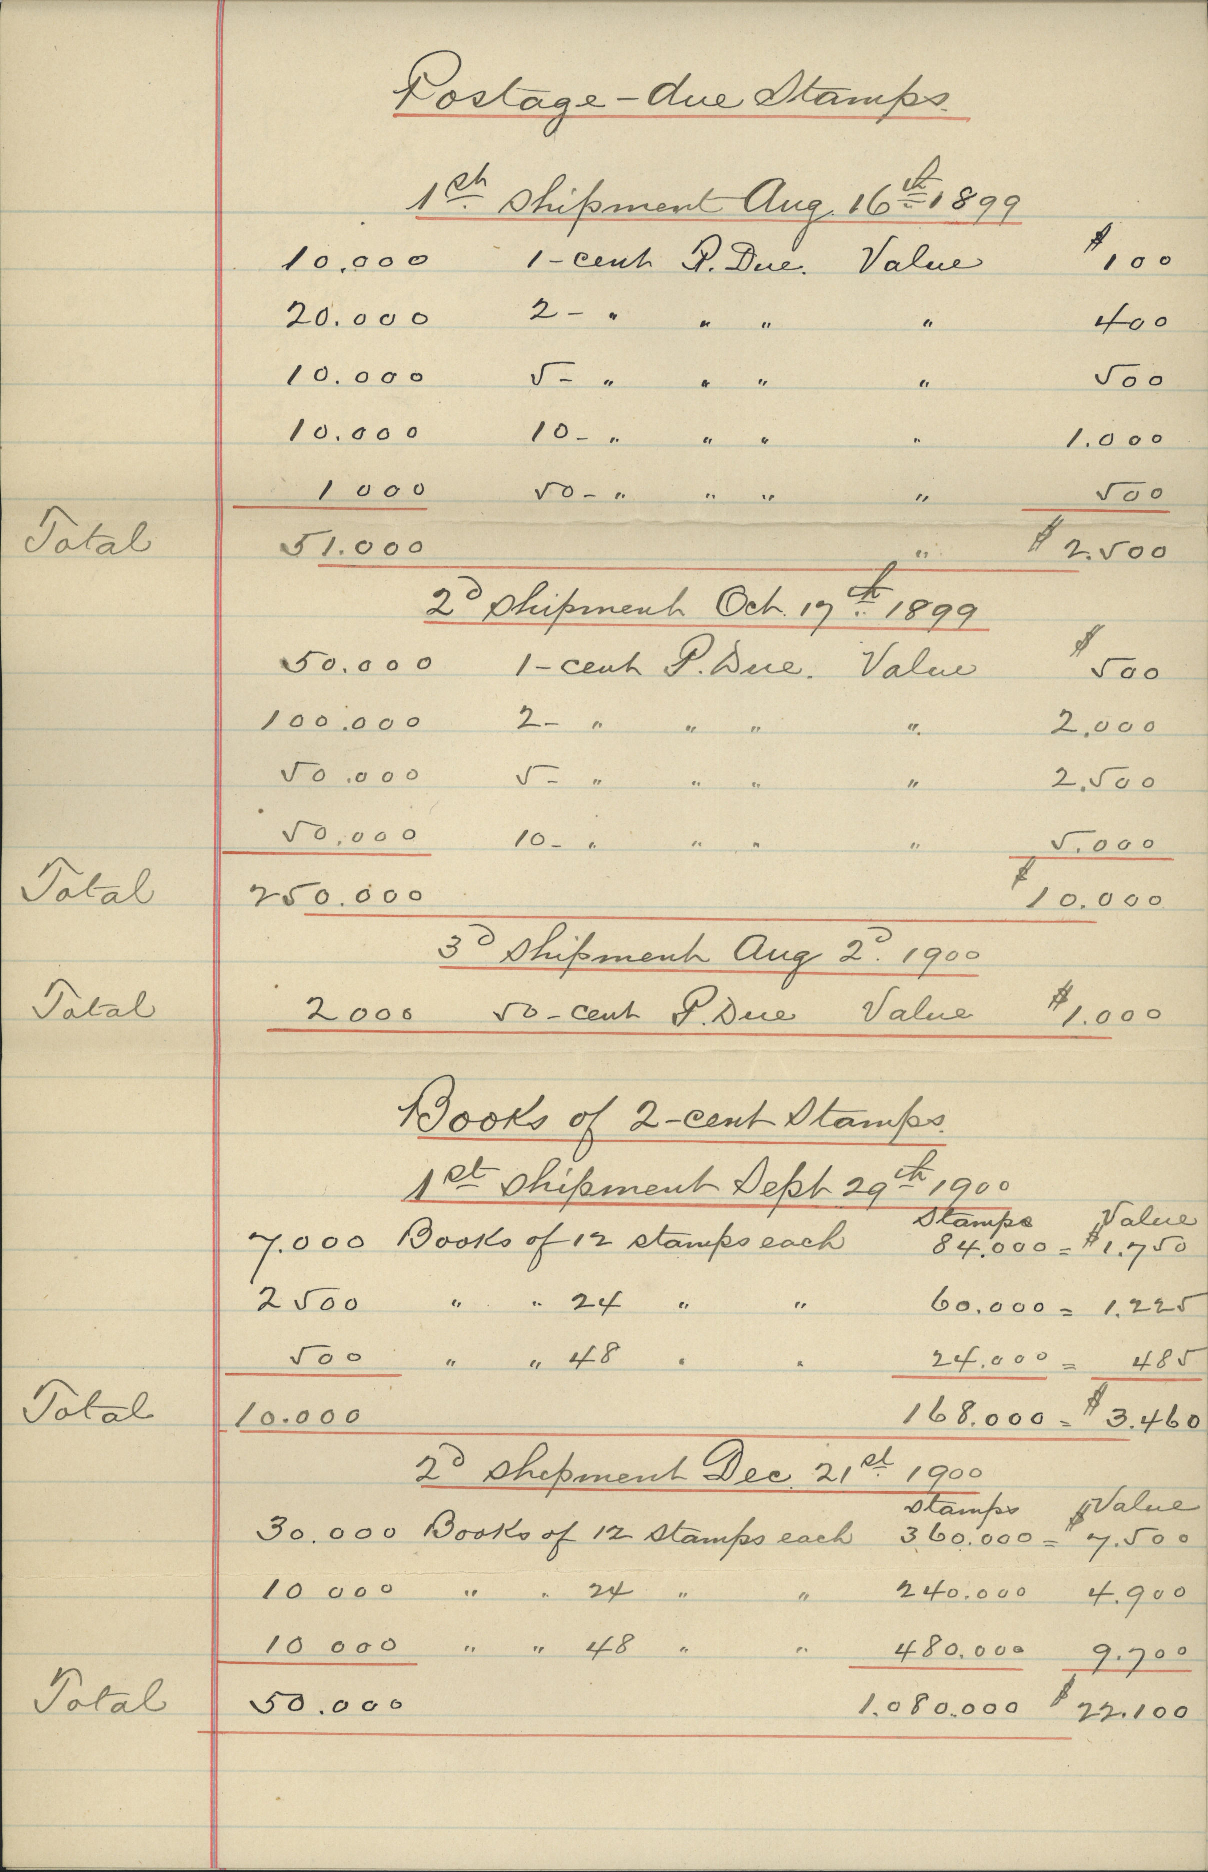 Postage-due Stamps.
1st shipment Aug. 16th 1899
10.000 1-cent P. Due. Value $100
20.000 2- " " " " 400
10.000 5- " " " " 500
10.000 10- " " " " 1.000
1 000 50- " " " " 500
Total 51.000 " $2.500
2d shipment Oct. 17th 1899
50.000 1-cent P. Due. Value $500
100.000 2- " " " " 2.000
50.000 5- " " " " 2.500
50.000 10- " " " " 5.000
Total 250.000 $10.000
3d shipment Aug 2d. 1900
Total 2000 50-cent P. Due Value $1.000
Books of 2-cent Stamps.
1st shipment Sept 29th 1900
Stamps Value
7.000 Books of 12 stamps each 84.000 = $1.750
2500 " " 24 " " 60.000 = 1.225
500 " " 48 " " 24.000 = 485
Total 10.000 168.000 = $3.460
2d shipment Dec. 21st 1900
Stamps Value
30.000 Books of 12 stamps each 360.000 = $7.500
10 000 " " 24 " " 240.000 4.900
10 000 " " 48 " " 480.000 9.700
Total 50.000 1.080.000 $22.100